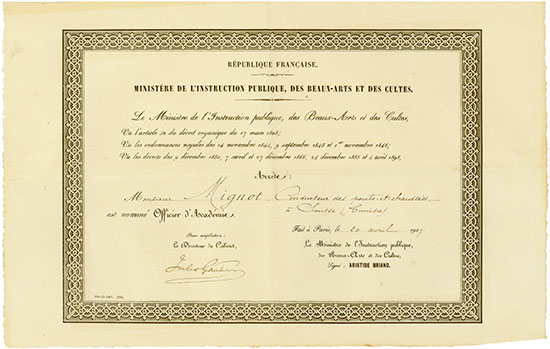 RÉPUBLIQUE FRANÇAISE.
MINISTÈRE DE L'INSTRUCTION PUBLIQUE, DES BEAUX-ARTS ET DES CULTES.
Le Ministre de l'Instruction publique, des Beaux-Arts et des Cultes,
Vu l'article 32 du décret organique du 17 mars 1808;
Vu les ordonnances royales des 14 novembre 1844, 9 septembre 1845 et 1er novembre 1846;
Vu les décrets des 9 décembre 1850, 7 avril et 27 décembre 1866, 24 décembre 1885 et 4 août 1898,
Arrête:
Monsieur Mignot, Conducteur des ponts et chaussées
à Sousse (Tunisie)
est nommé Officier d'Académie.
Fait à Paris, le 20 avril 1907.
Pour ampliation:
Le Directeur du Cabinet,
Le Ministre de l'Instruction publique,
des Beaux-Arts et des Cultes,
Signé: ARISTIDE BRIAND.